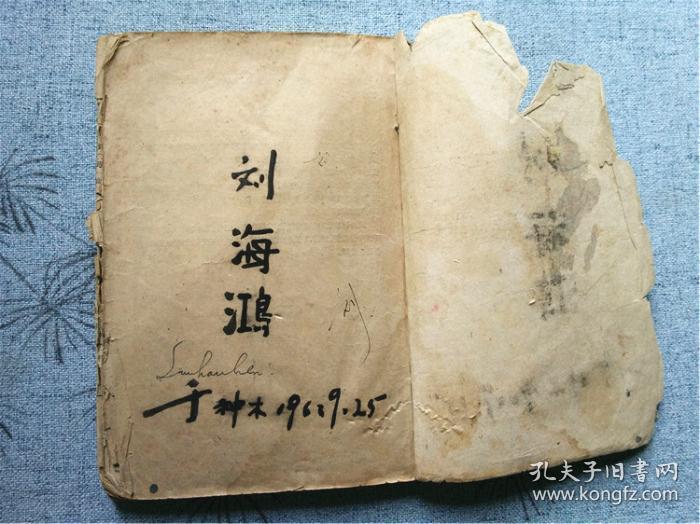 刘
海
鸿
刘
于种木 1962.9.25
孔夫子旧书网
www.kongfz.com